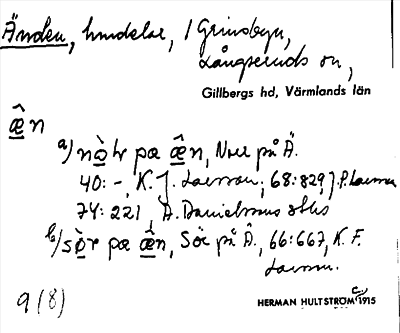 Änden, hemdelar, i Grinsbyn,
Långseruds sn,
Gillbergs hd, Värmlands län
æ̂n
a) nò̱lr pæ æ̂n, Norr på Ä.
40:-, K. J. Larsson; 68:829, J. P. Larsson
74:221, A. Danielssons sthus
b) sò̱r pæ æ̂n, Sör på Ä., 66:667, K. F.
Larsson.
9(8)
HERMAN HULTSTRÖM 1915